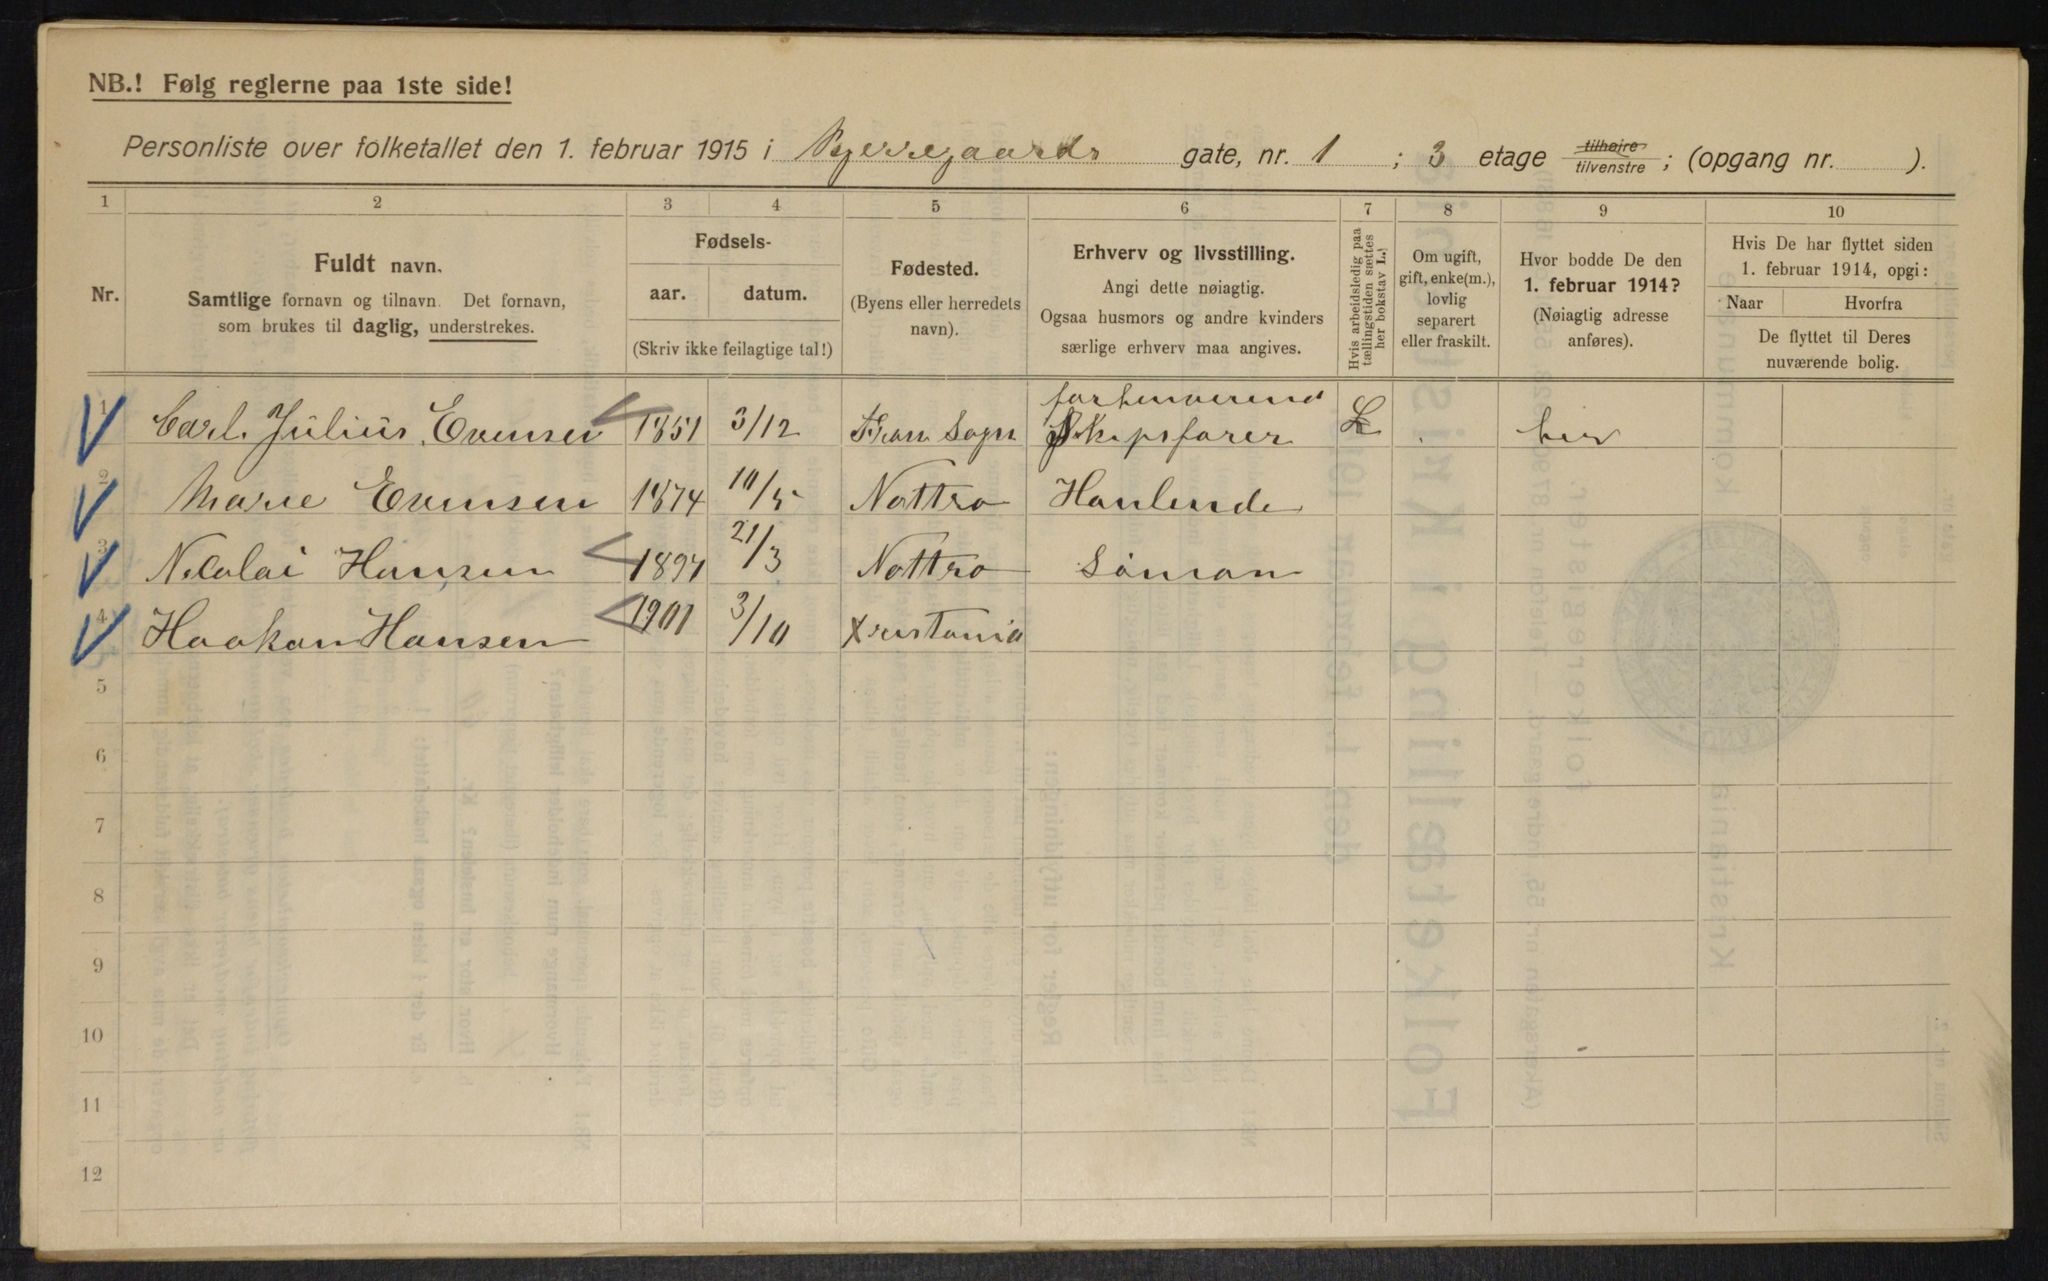 NB.! Følg reglerne paa 1ste side!
Personliste over folketallet den 1. februar 1915 i Bjerregaards gate, nr. 1 ; 3 etage tilhøire tilvenstre ; (opgang nr. ).
1 2 3 4 5 6 7 8 9 10
Nr.
Fuldt navn.
Samtlige fornavn og tilnavn. Det fornavn,
som brukes til daglig, understrekes.
Fødsels-
aar. datum.
(Skriv ikke feilagtige tal!)
Fødested.
(Byens eller herredets
navn).
Erhverv og livsstilling.
Angi dette nøiagtig.
Ogsaa husmors og andre kvinders
særlige erhverv maa angives.
Hvis arbeidsledig paa
tællingstiden sættes
her bokstav L.
Om ugift,
gift, enke(m.),
lovlig
separert
eller fraskilt.
Hvor bodde De den
1. februar 1914?
(Nøiagtig adresse
anføres).
Hvis De har flyttet siden
1. februar 1914, opgi:
Naar Hvorfra
De flyttet til Deres
nuværende bolig.
1 Carl. Julius. Evensen 1851 3/12 Fran Sogn forhenværend Skipsfører L her
2 Marie Evensen 1874 10/5 Nøttrø Hanlende
3 Nicolai Hansen 1897 21/3 Nøttrø Söman
4 Haakon Hansen 1901 3/10 Xristania
5
6
7
8
9
10
11
12